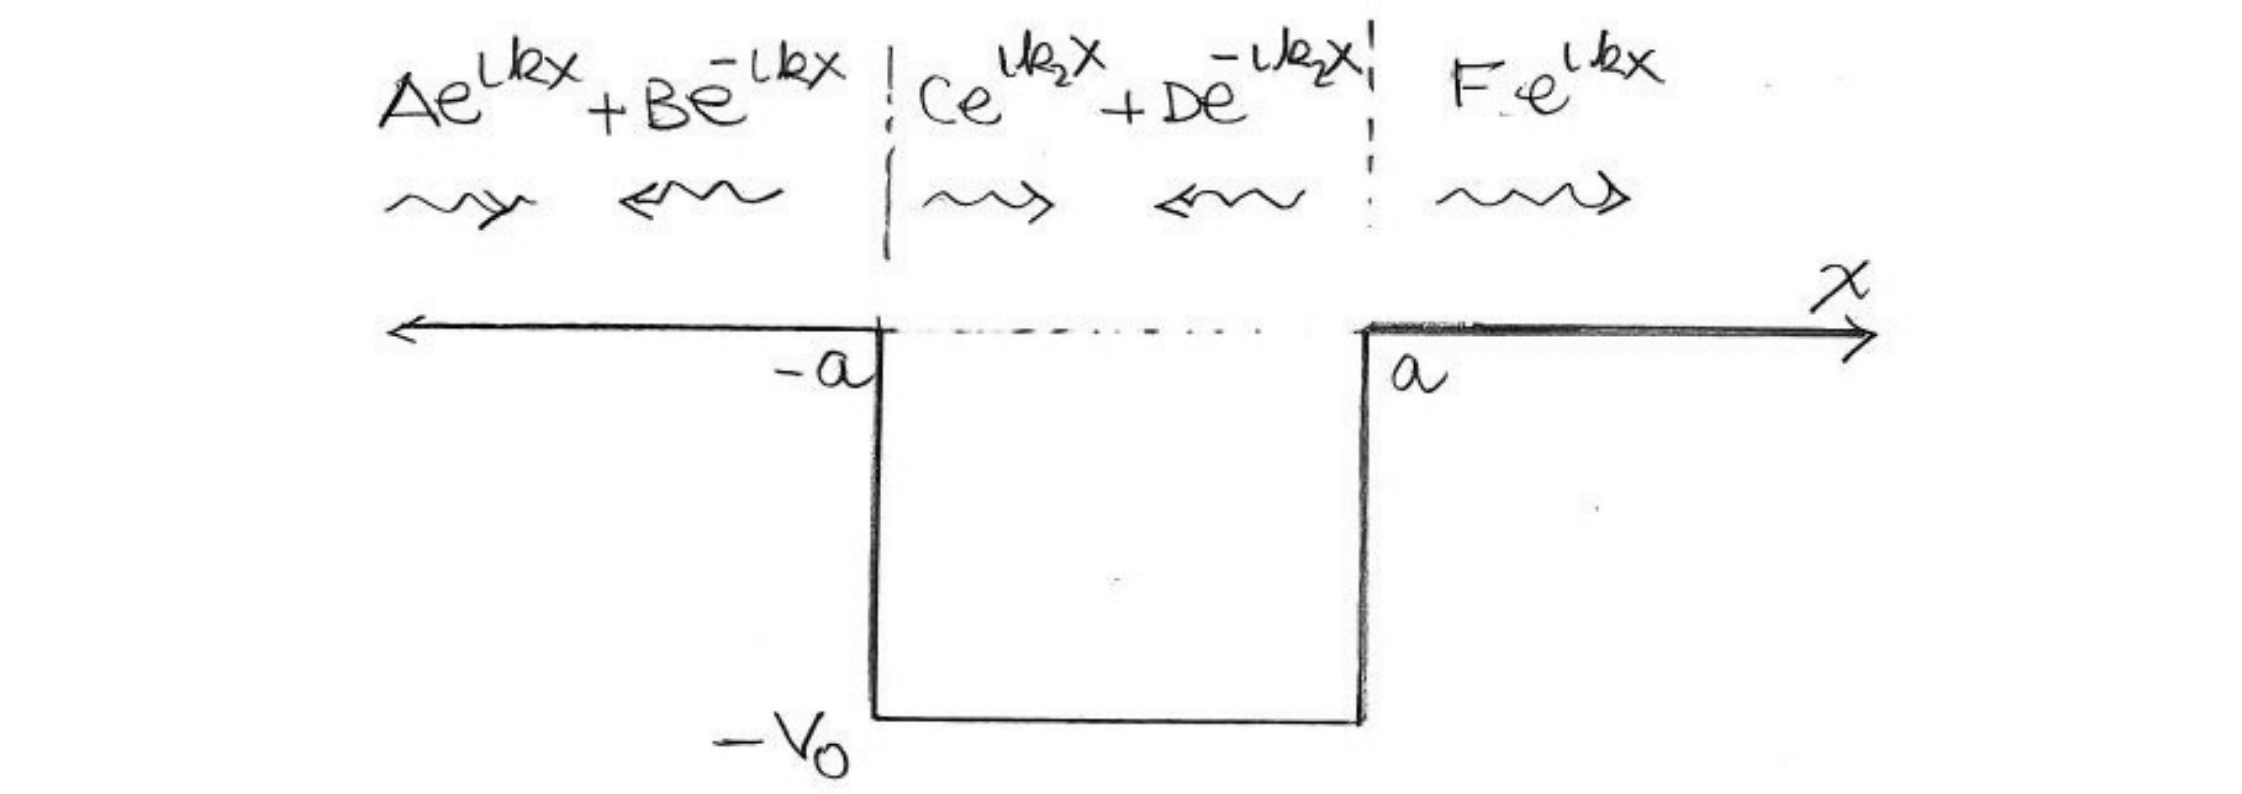 Ae^{ikx} + Be^{-ikx} Ce^{ik₂x} + De^{-ik₂x} Fe^{ikx}
x
-a a
-V₀